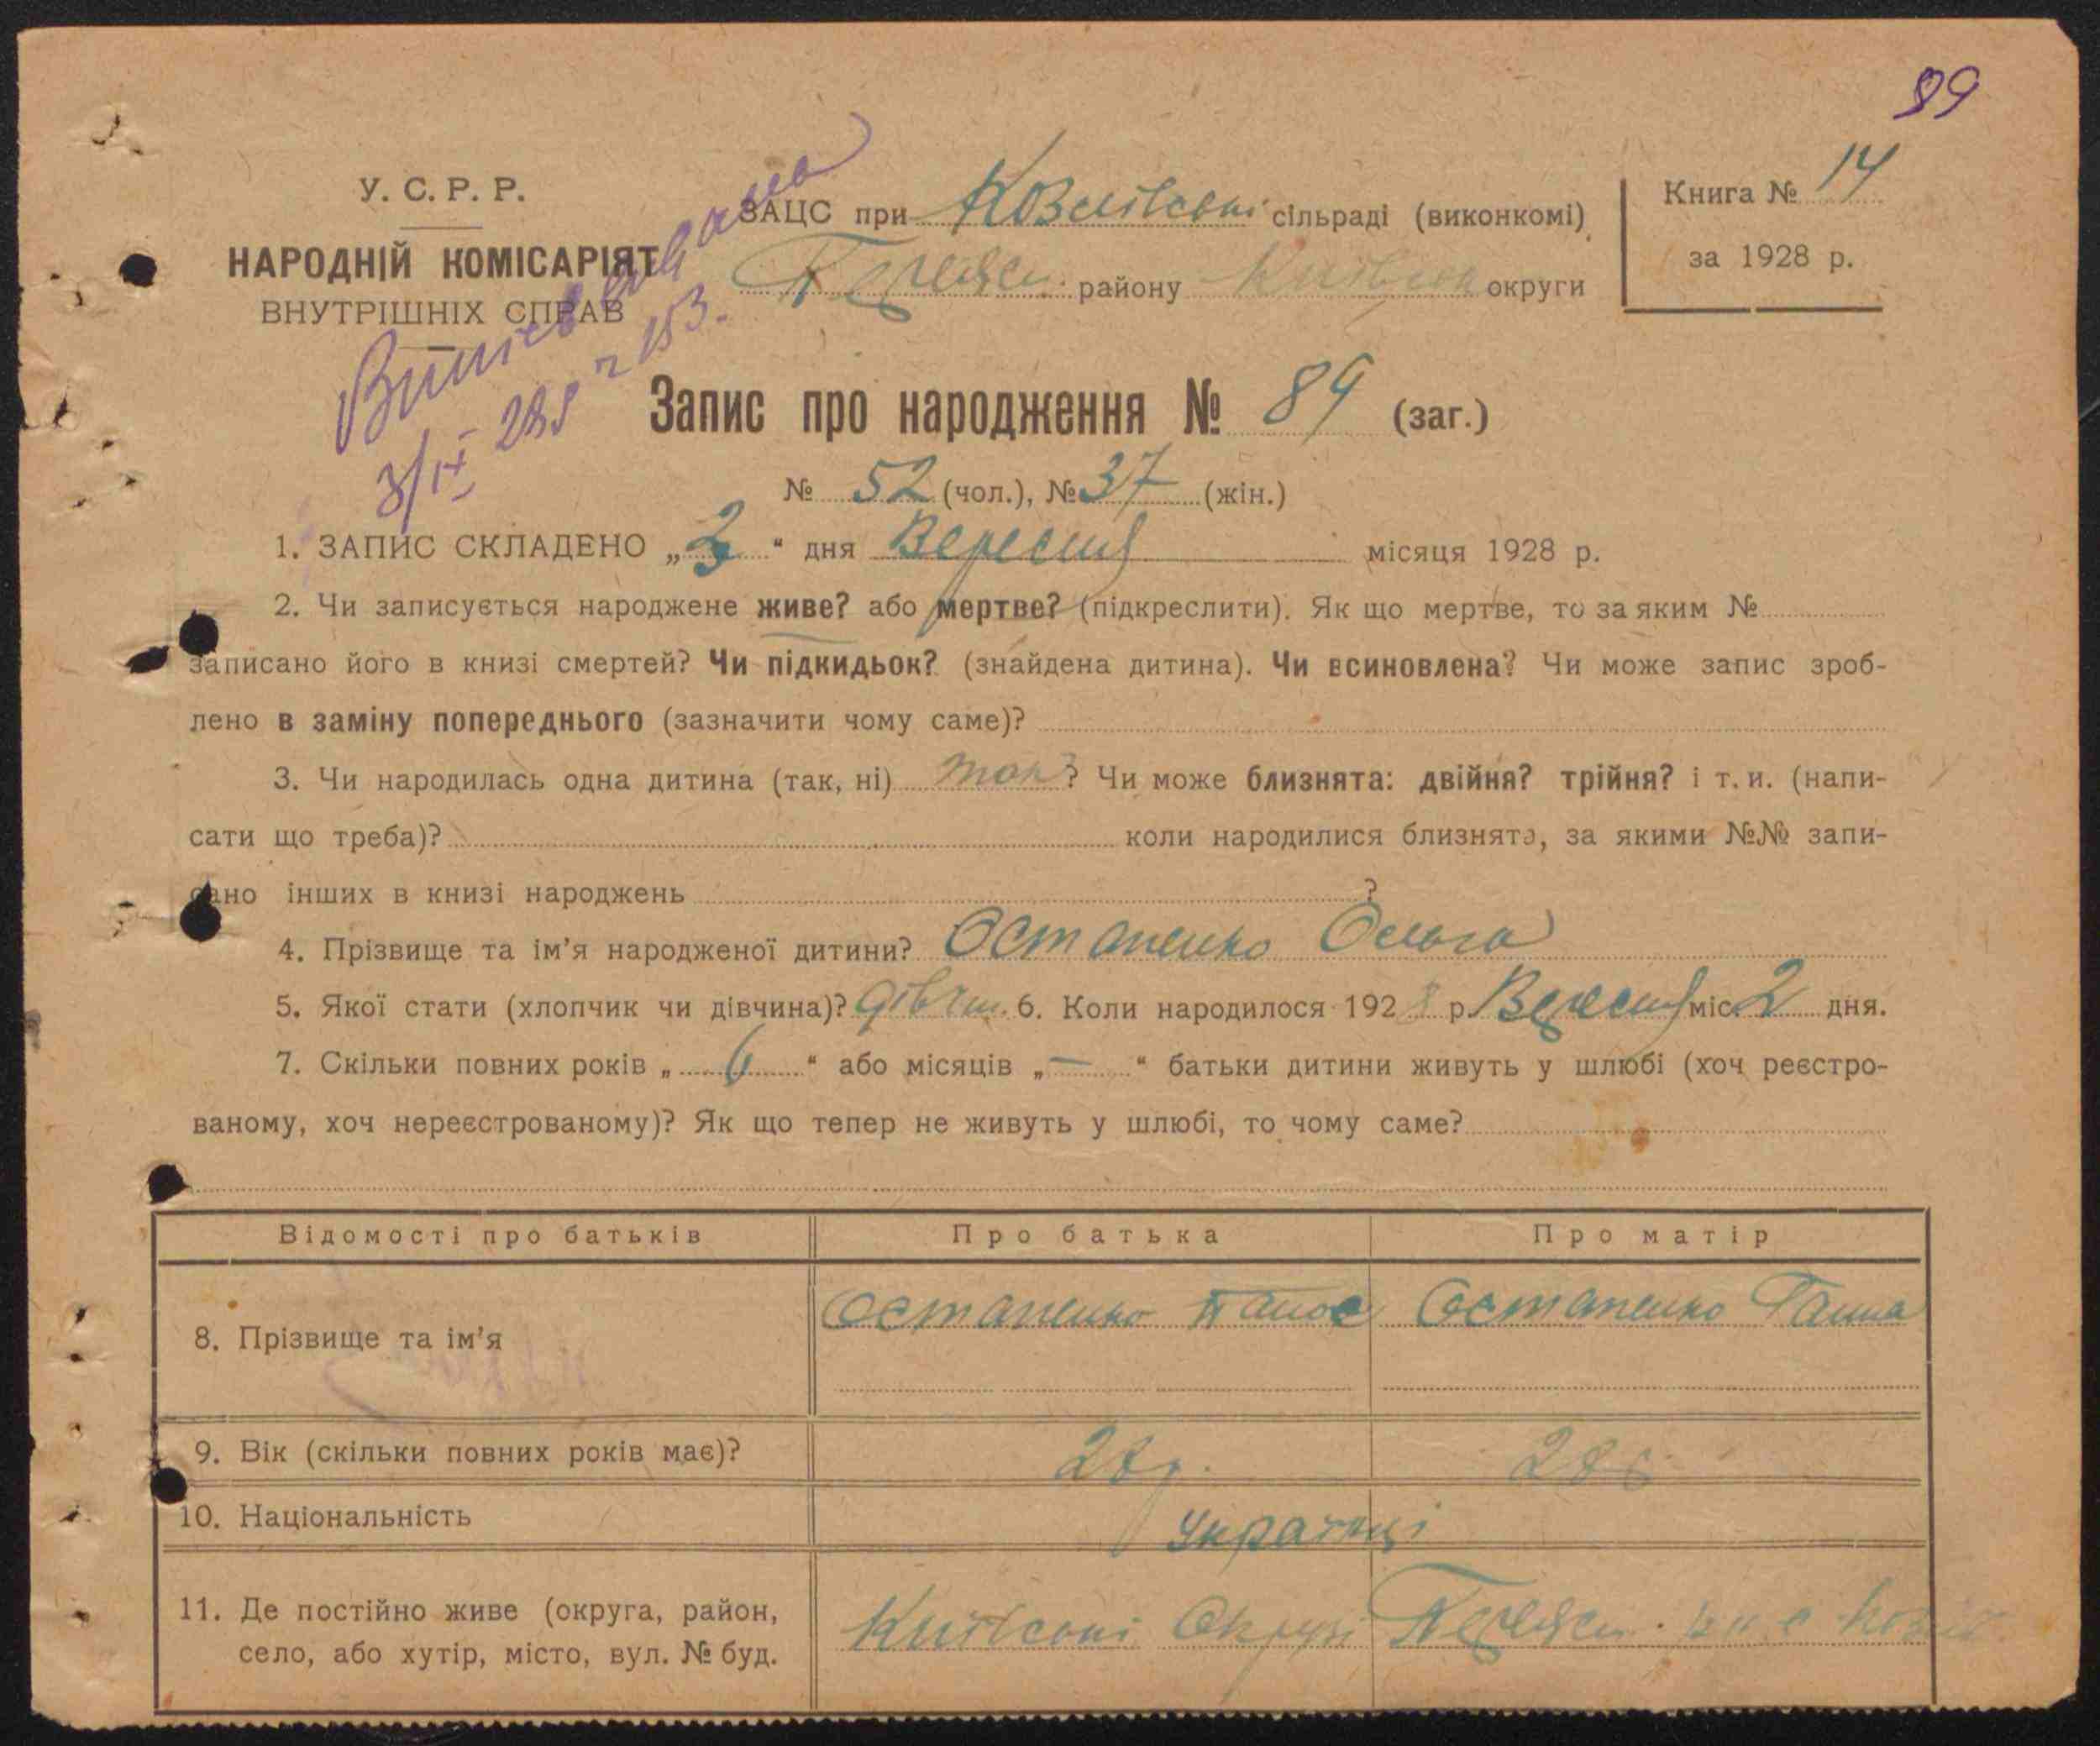 89
У. С. Р. Р.
НАРОДНІЙ КОМІСАРІЯТ
ВНУТРІШНІХ СПРАВ
ЗАЦС при сільраді (виконкомі)
району Київськ округи
Книга № 14
за 1928 р.
Запис про народження № 89 (заг.)
№ 52 (чол.), № 37 (жін.)
1. ЗАПИС СКЛАДЕНО „3“ дня Вересня місяця 1928 р.
2. Чи записується народжене живе? або мертве? (підкреслити). Як що мертве, то за яким №
записано його в книзі смертей? Чи підкидьок? (знайдена дитина). Чи всиновлена? Чи може запис зроб-
лено в заміну попереднього (зазначити чому саме)?
3. Чи народилась одна дитина (так, ні) так? Чи може близнята: двійня? трійня? і т. и. (напи-
сати що треба)? коли народилися близнята, за якими №№ запи-
сано інших в книзі народжень ?
4. Прізвище та ім’я народженої дитини? Остапенко Ольга
5. Якої стати (хлопчик чи дівчина)? дівчин. 6. Коли народилося 1928 р. Вересня міс. 2 дня.
7. Скільки повних років „6“ або місяців „—“ батьки дитини живуть у шлюбі (хоч реєстро-
ваному, хоч нереєстрованому)? Як що тепер не живуть у шлюбі, то чому саме?
Відомості про батьків Про батька Про матір
8. Прізвище та ім’я Остапенко Панас Остапенко Ганна
9. Вік (скільки повних років має)? 28 р. 28
10. Національність Українці
11. Де постійно живе (округа, район, Київські Округи
село, або хутір, місто, вул. № буд.